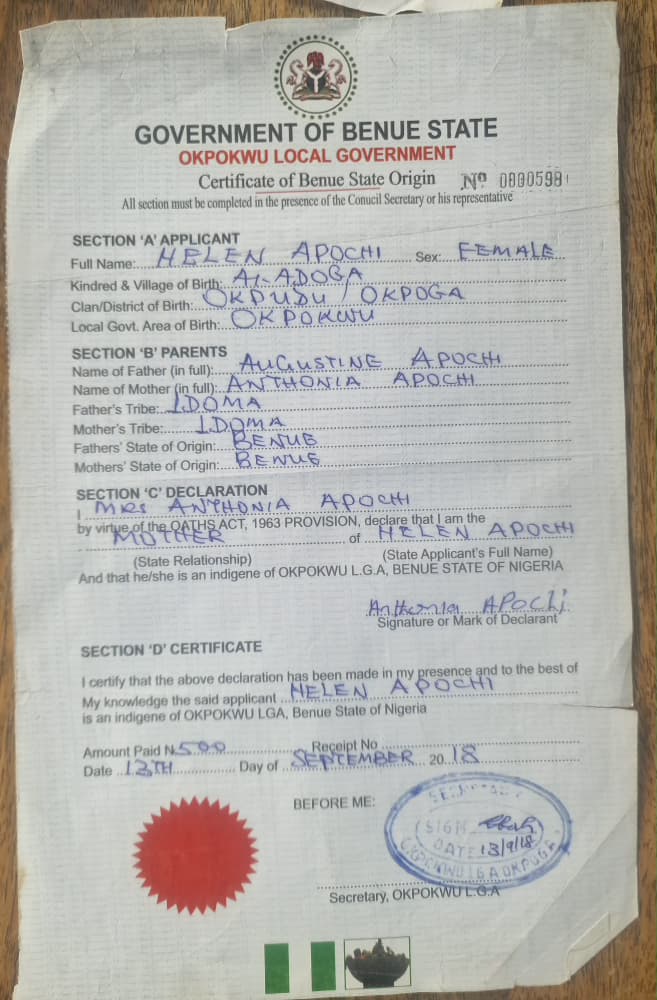 GOVERNMENT OF BENUE STATE
OKPOKWU LOCAL GOVERNMENT
Certificate of Benue State Origin Nº 0000598
All section must be completed in the presence of the Conucil Secretary or his representative
SECTION 'A' APPLICANT
Full Name: HELEN APOCHI Sex: FEMALE
Kindred & Village of Birth: AI-ADOGA
Clan/District of Birth: OKPUDU / OKPOGA
Local Govt. Area of Birth: OKPOKWU
SECTION 'B' PARENTS
Name of Father (in full): AUGUSTINE APOCHI
Name of Mother (in full): ANTHONIA APOCHI
Father's Tribe: IDOMA
Mother's Tribe: IDOMA
Fathers' State of Origin: BENUE
Mothers' State of Origin: BENUE
SECTION 'C' DECLARATION
I MRS ANTHONIA APOCHI
by virtue of the OATHS ACT, 1963 PROVISION, declare that I am the
MOTHER of HELEN APOCHI
(State Relationship) (State Applicant's Full Name)
And that he/she is an indigene of OKPOKWU L.G.A, BENUE STATE OF NIGERIA
Anthonia APOchi
Signature or Mark of Declarant
SECTION 'D' CERTIFICATE
I certify that the above declaration has been made in my presence and to the best of
My knowledge the said applicant HELEN APOCHI
is an indigene of OKPOKWU LGA, Benue State of Nigeria
Amount Paid N 500 Receipt No
Date 13TH Day of SEPTEMBER 2018
BEFORE ME:
SECRETARY
SIGN
DATE 13/9/18
OKPOKWU LGA OKPOGA
Secretary, OKPOKWU L.G.A